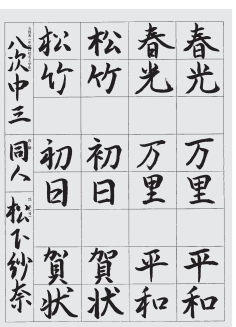 春光 万里 平和
春光 万里 平和
松竹 初日 賀状
松竹 初日 賀状
八次中三 同人 松下紗奈